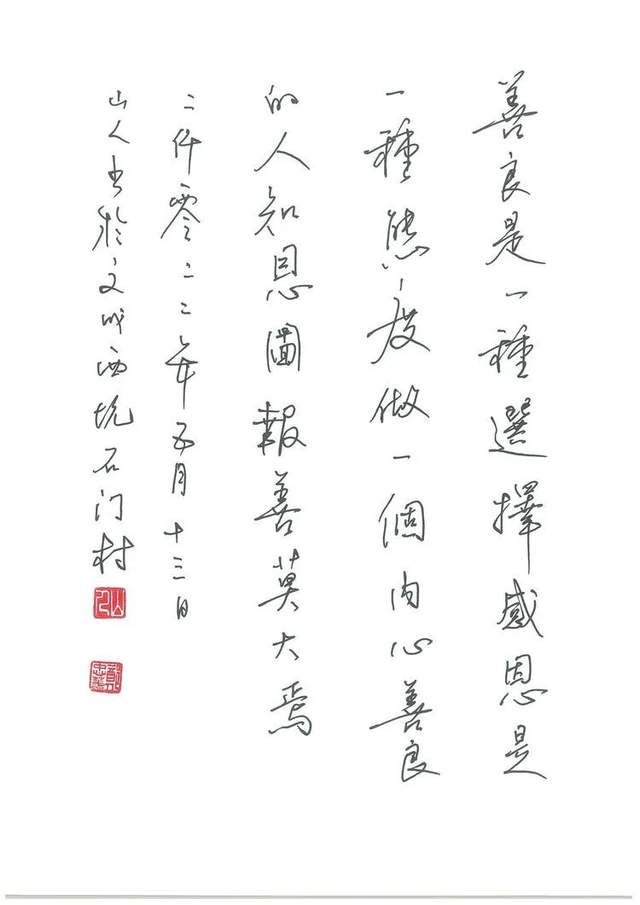 善良是一種選擇感恩是
一種態度做一個内心善良
的人知恩圖報善莫大焉
二仟零二二年五月十三日
山人书於文成西坑石门村
山人